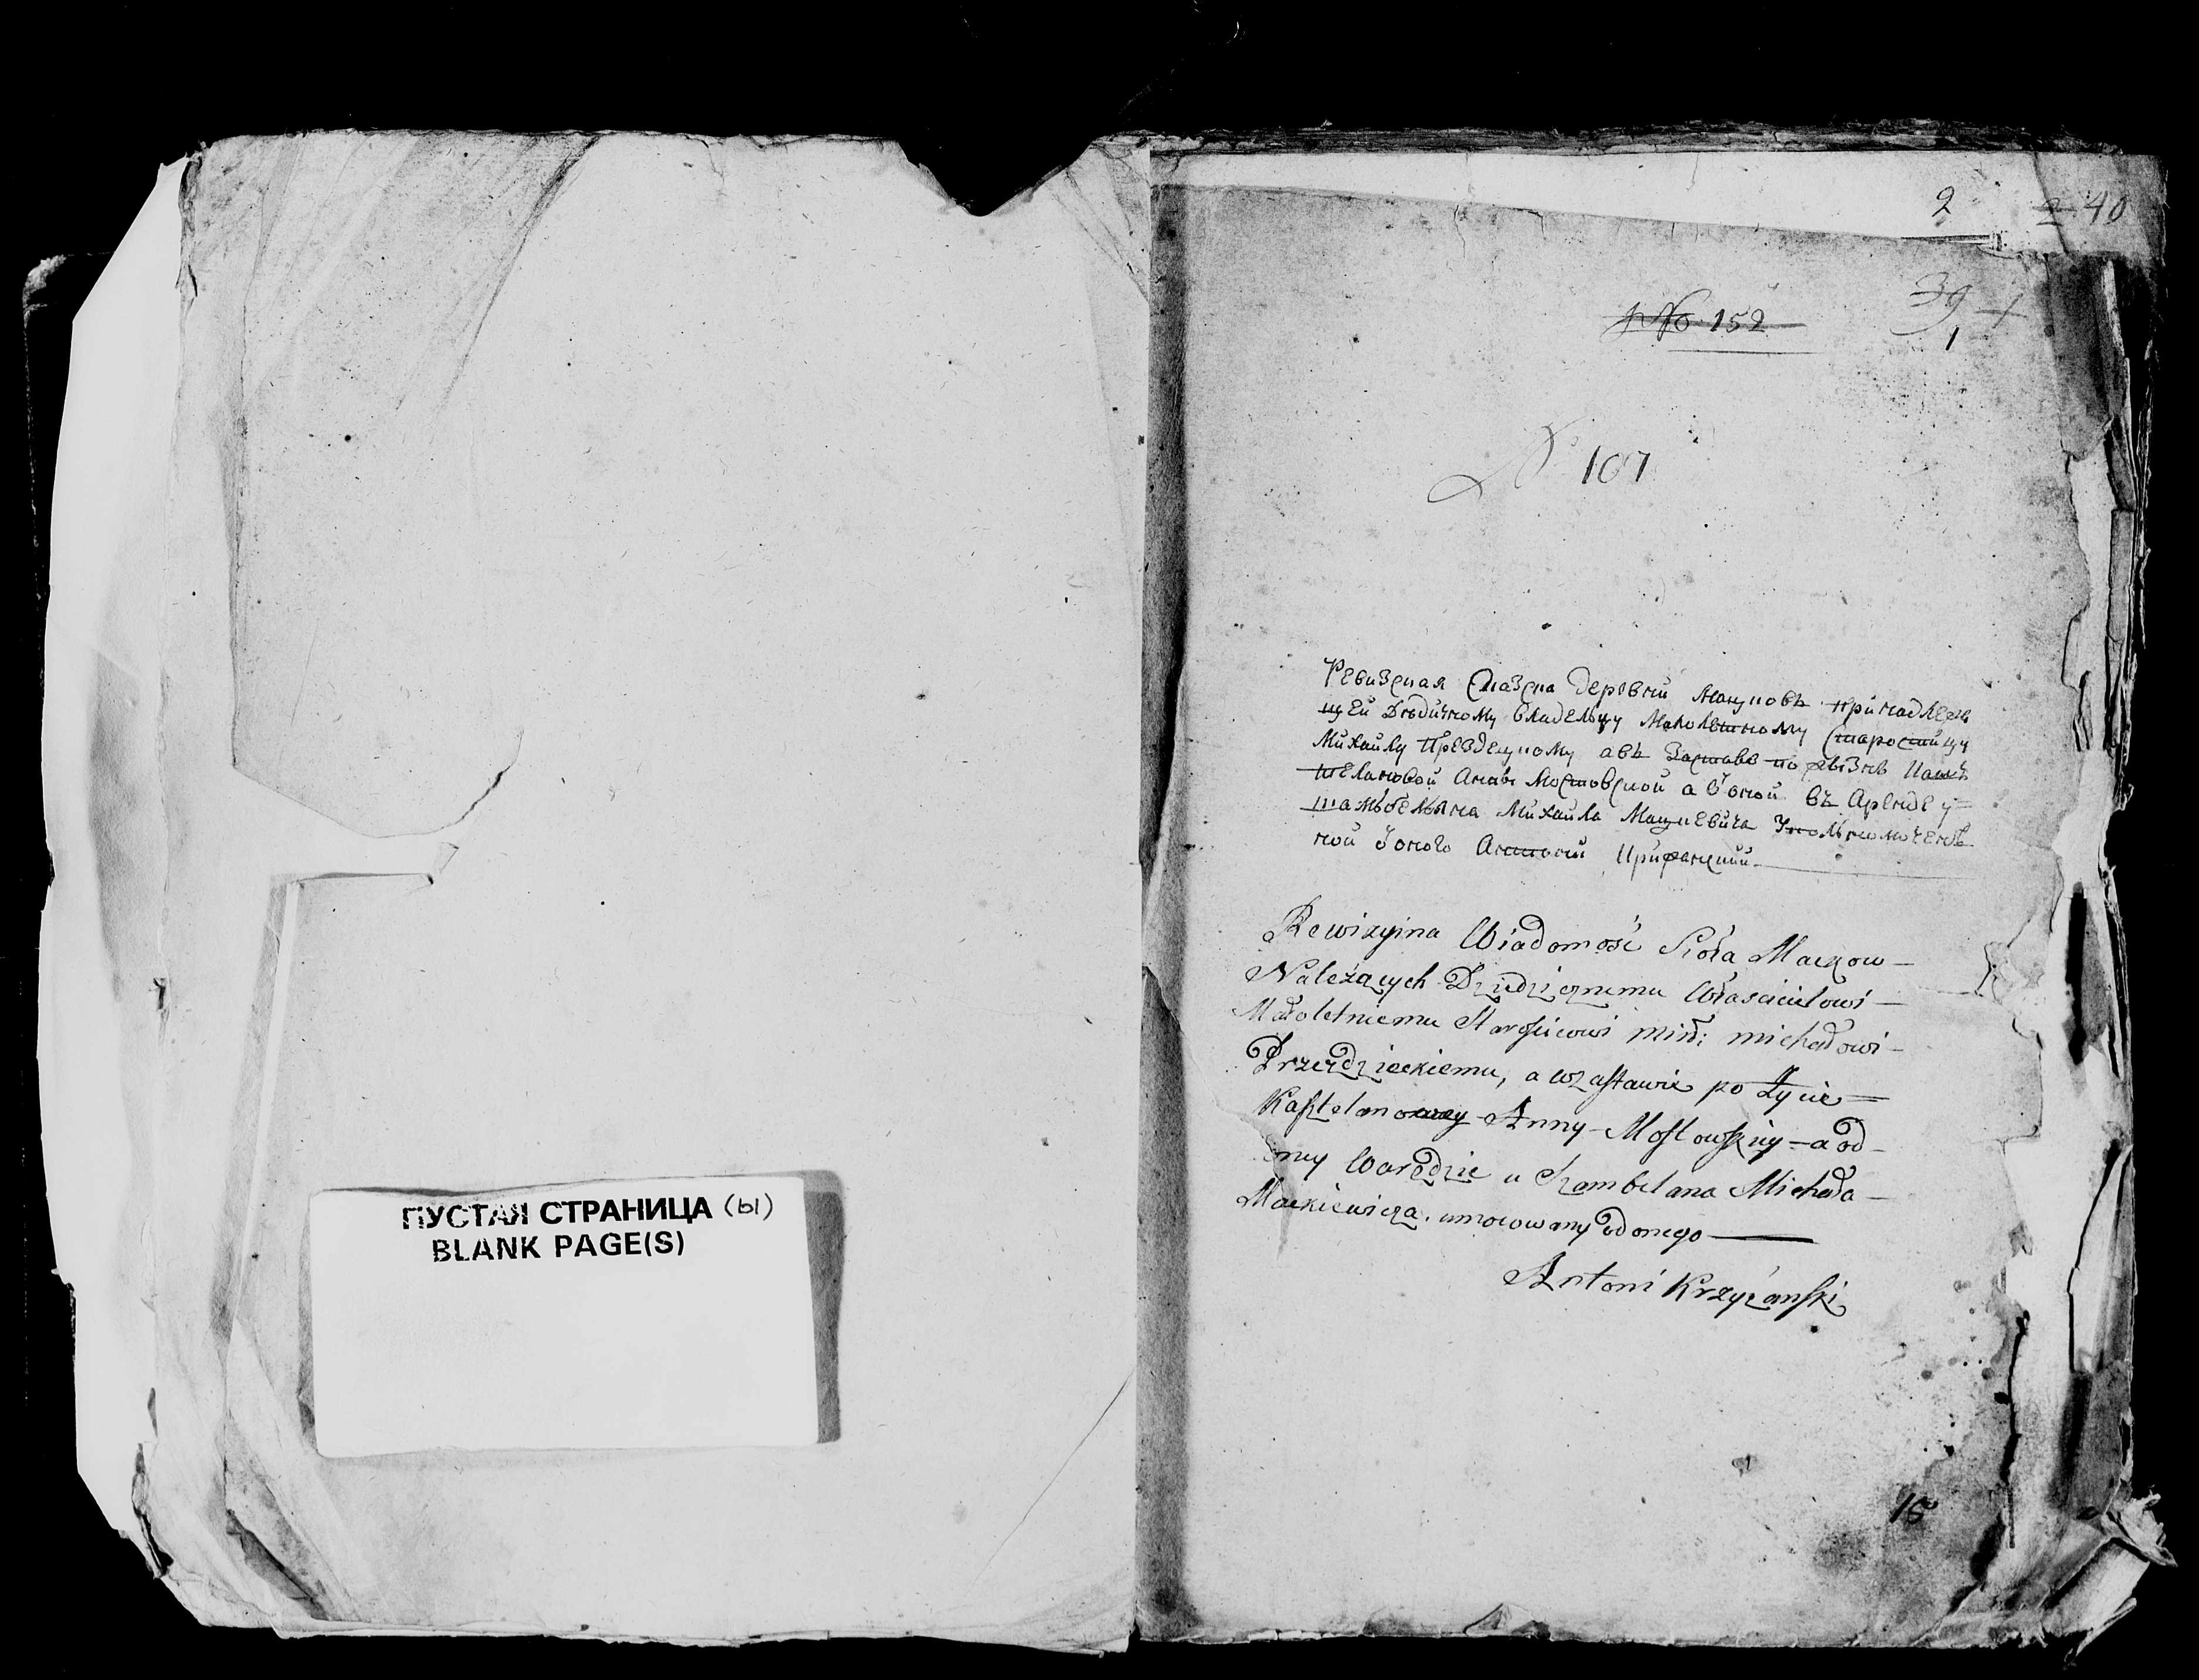 ПУСТАЯ СТРАНИЦА (ы)
BLANK PAGE(S)
2 40
No 152
39
1
N 107
Ревизская Сказка деревни Мацковъ принадлежа
щей Дѣдичному владельцу Малолетному Старостицу
Михайлу Презде­цкому а въ Заставе по жизнь Каште
шелановой Анны Мостовской а ѿ оной въ Аренде у
шамбеляна Михайла Мацкевича Уполномочен
ной ѿ оного Антоний Крижанский
Rewizyina Wiadomość Sioła Mackow
Należących Dziedzicznemu Włascicielowi
Małoletniemu Starościcowi Miń: Michałowi
Przezdzieckiemu, a w zastawie po Życie
Kasztelanowey Anny Mostowskiy a od
oney w arędzie u Szambelana Michała
Mackiewicza. umocowany od onego
Antoni Krzyżanski
15